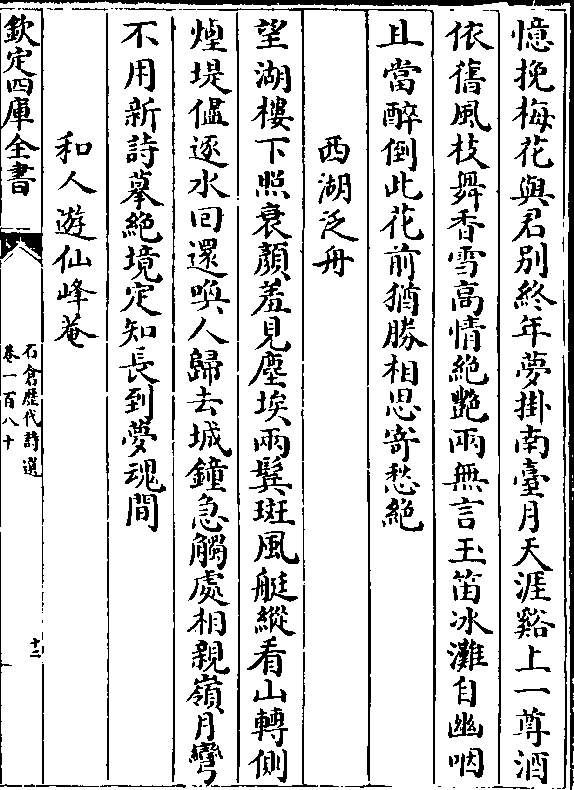 憶挽梅花與君別終年夢掛南臺月天涯谿上一尊酒
依舊風枝舞香雪高情絶艶兩無言玉笛冰灘自幽咽
且當醉倒此花前猶勝相思寄愁絶
西湖泛舟
望湖樓下照衰顔羞見塵埃兩鬂斑風艇縱看山轉側
煙堤儘逐水回還喚人歸去城鐘急觸處相親嶺月彎
不用新詩摹絶境定知長到夢魂間
和人遊仙峰菴
欽定四庫全書
石倉歴代詩選
卷一百八十
十二